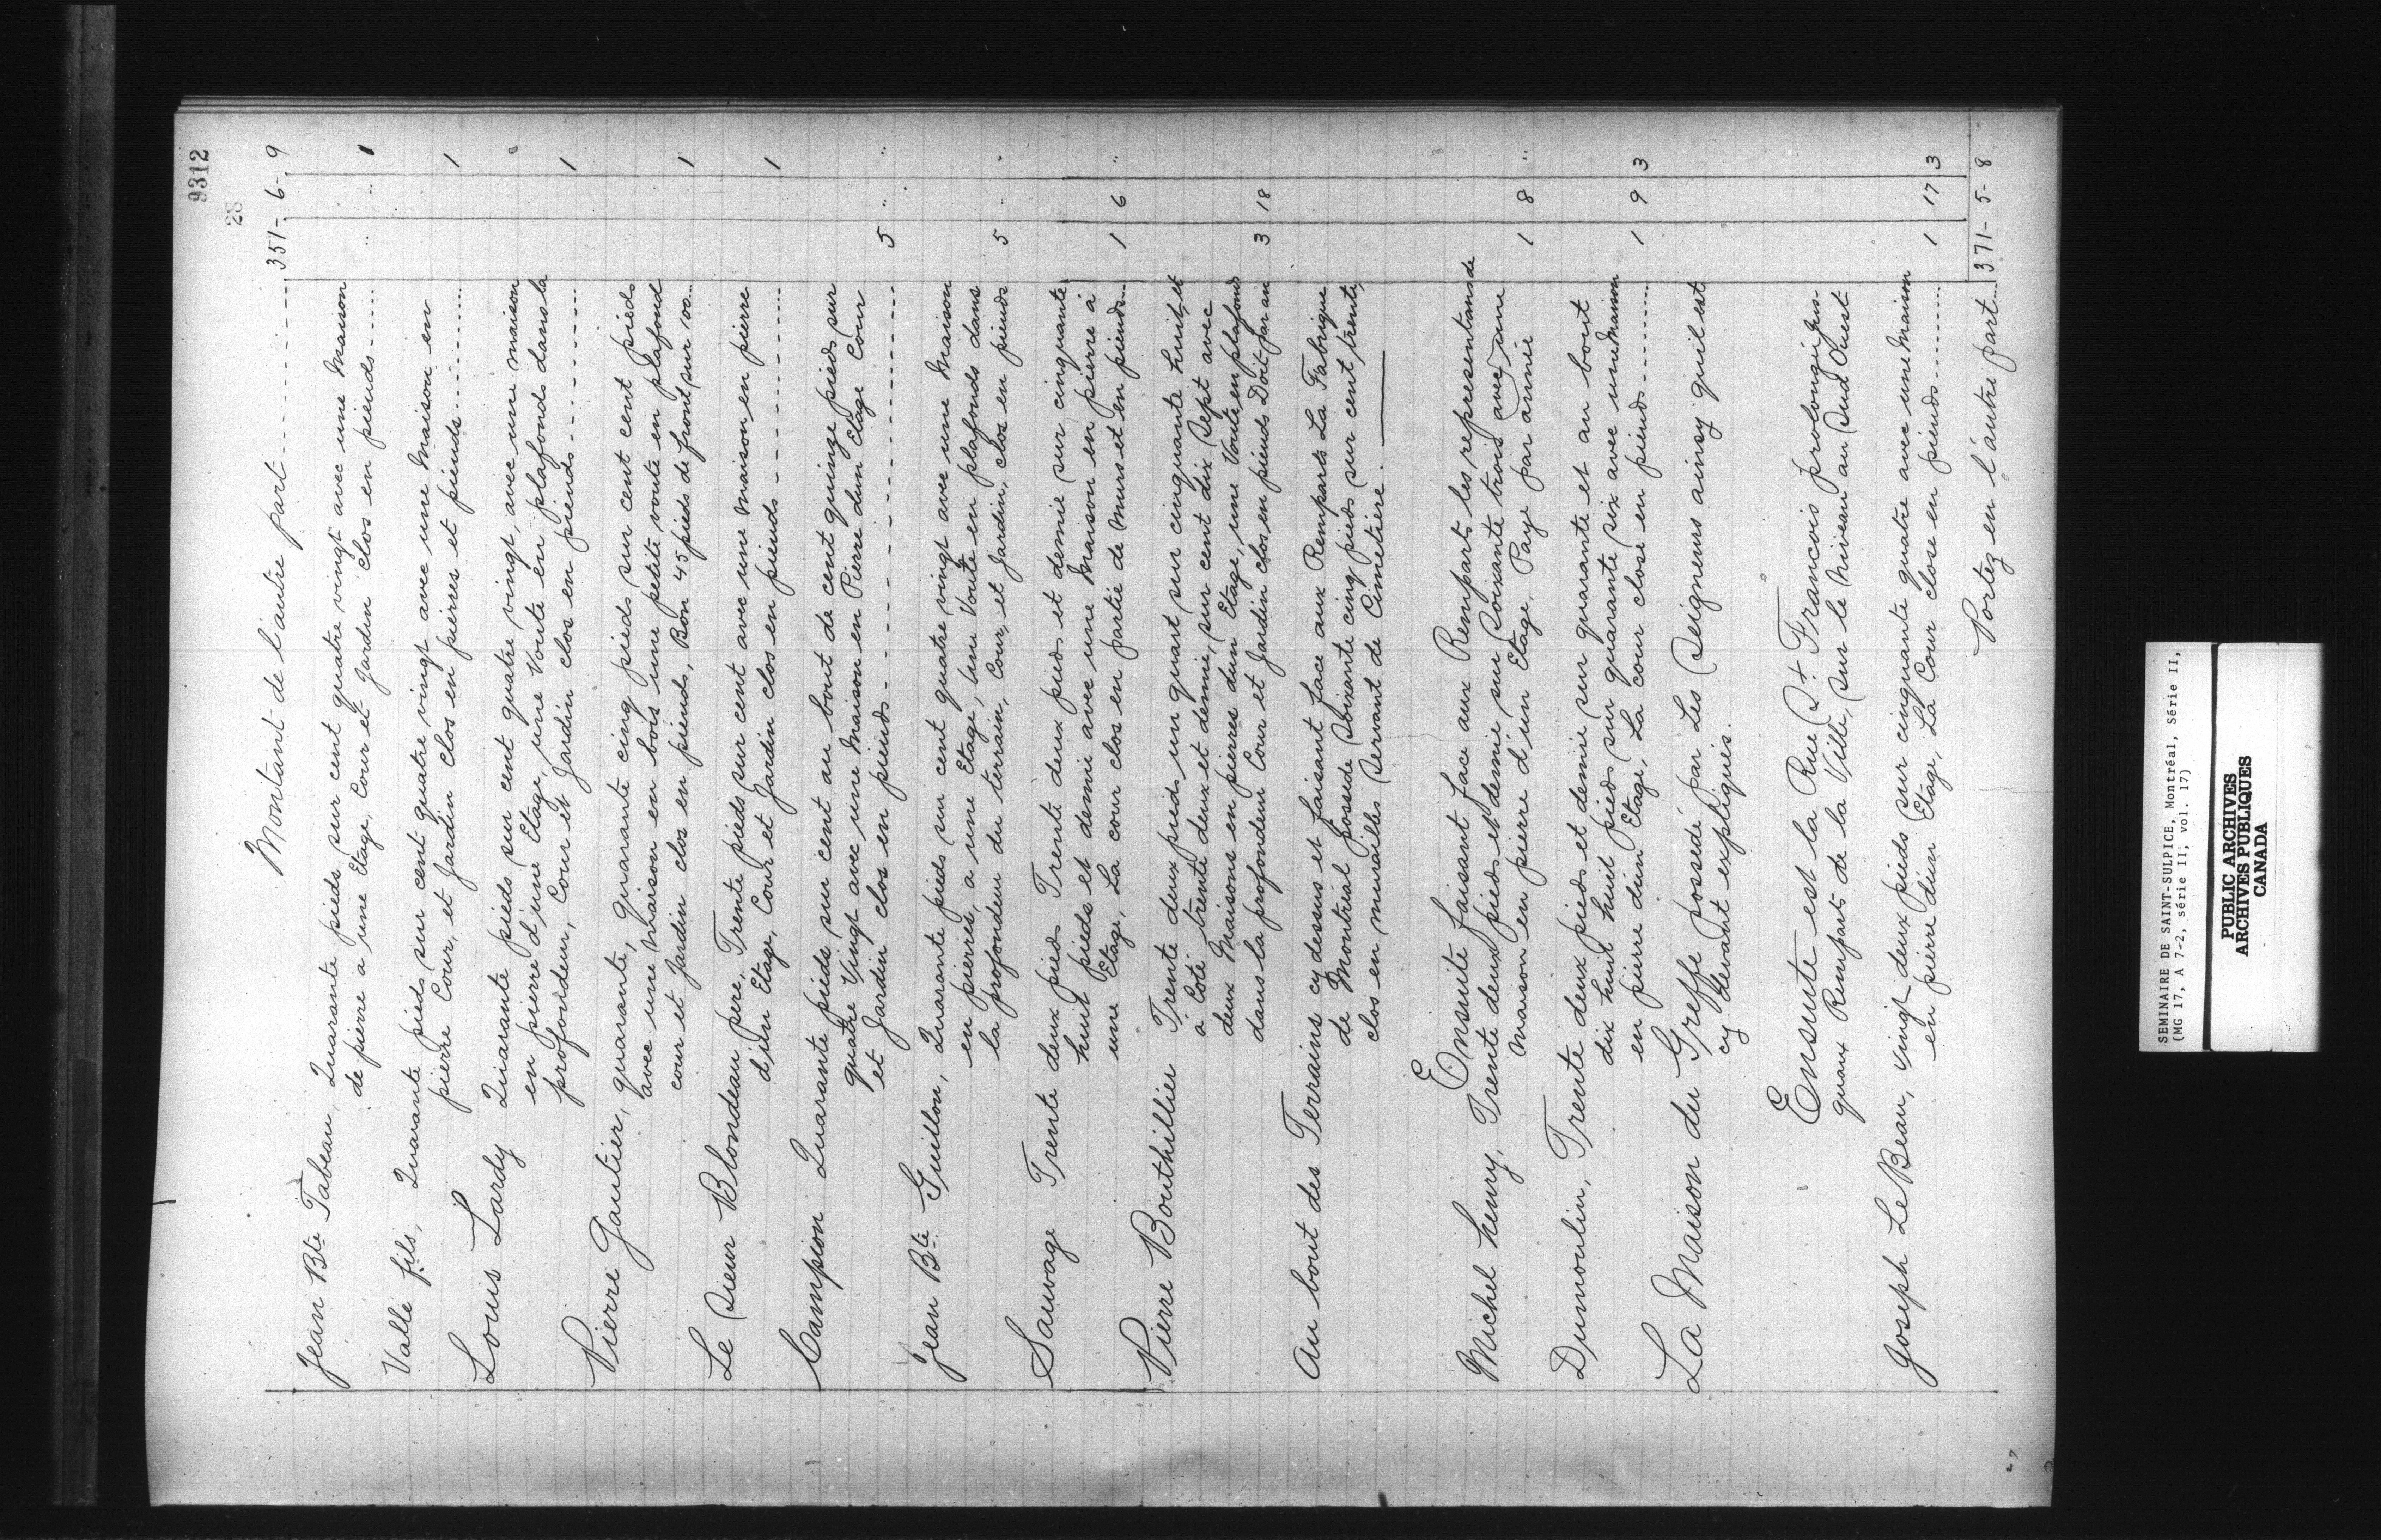 9312
28
Montant de l'autre part 351 - 6 - 9
Jean Bte Tabeau, Quarante pieds sur cent quatre vingt avec une Maison
de pierre a une Etage, Cour et Jardin clos en pieuds ...... " " 1
Valle fils, Quarante pieds sur cent quatre vingt avec une Maison en
pierre Cour, et Jardin clos en pierres et pieuds ............ 1
Louis Lardy Quarante pieds sur cent quatre vingt, avec une maison
en pierre d'une Etage, une Voute en plafonds dans la
profondeur, Cour et Jardin clos en pieuds ............ 1
Pierre Gautier, quarante, quarante cinq pieds sur cent cent pieds
avec une Maison en bois une petite voute en plafond
cour et Jardin clos en pieuds, Bon 45 pieds de front sur 100 ... 1
Le Sieur Blondeau pere, Trente pieds sur cent avec une Maison en pierre
d'un Etage, Cour et Jardin clos en pieuds ............ 1
Campion Quarante pieds sur cent au bout de cent quinze pieds sur
quatre Vingt avec une Maison en Pierre d'un Etage Cour
et Jardin clos en pieuds ............ 5 " "
Jean Bte Guillon, Quarante pieds sur cent quatre vingt avec une Maison
en pierres, a une Etage, une Voute en plafonds dans
la profondeur du terrain, Cour, et Jardin, clos en pieuds 5 " "
Sauvage Trente deux pieds Trente deux pieds et demie sur cinquante
huit pieds et demi avec une Maison en pierre à
une Etage, La cour clos en partie de murs et en pieuds ... 1 6 "
Pierre Bouthillier Trente deux pieds un quart sur cinquante huit, et
a Coté trente deux et demie, sur cent dix Sept avec
deux Maisons en pierres d'un Etage, une Voute en plafonds
dans la profondeur Cour et Jardin clos en pieuds Doit par an 3 18
Au bout des Terrains cy dessus et faisant face aux Remparts La Fabrique
de Montréal possede Soixante cinq pieds sur cent trente,
clos en murailles Servant de Cimetiere.
Ensuite faisant face aux Remparts les representans de
Michel henry, Trente deux pieds et demie sur Soixante trois avec une
Maison en pierre d'un Etage, Paye par année 1 8 "
Dumoulin, Trente deux pieds et demie sur quarante et au bout
dix huit huit pieds sur quarante six avec une Maison
en pierre d'un Etage, La cour close en pieuds ........ 1 9 3
La Maison du Greffe possedé par Les Seigneurs ainsy qu'il est
cy devant expliqués.
Ensuite est la Rue St. Francois prolongée jus-
quaux Remparts de la Ville, Sur le Niveau au Sud Ouest
Joseph Le Beau, vingt deux pieds sur cinquante quatre avec une Maison
en pierre d'un Etage, La Cour close en pieuds ......... 1 17 3
Portez en l'autre part ... 371 - 5 - 8
SEMINAIRE DE SAINT-SULPICE, Montréal, Série II,
(MG 17, A 7-2, série II, vol. 17)
PUBLIC ARCHIVES
ARCHIVES PUBLIQUES
CANADA